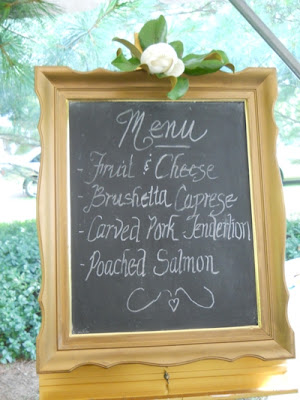 Menu
- Fruit & Cheese
- Brushetta Caprese
- Carved Pork Tendertion
- Poached Salmon